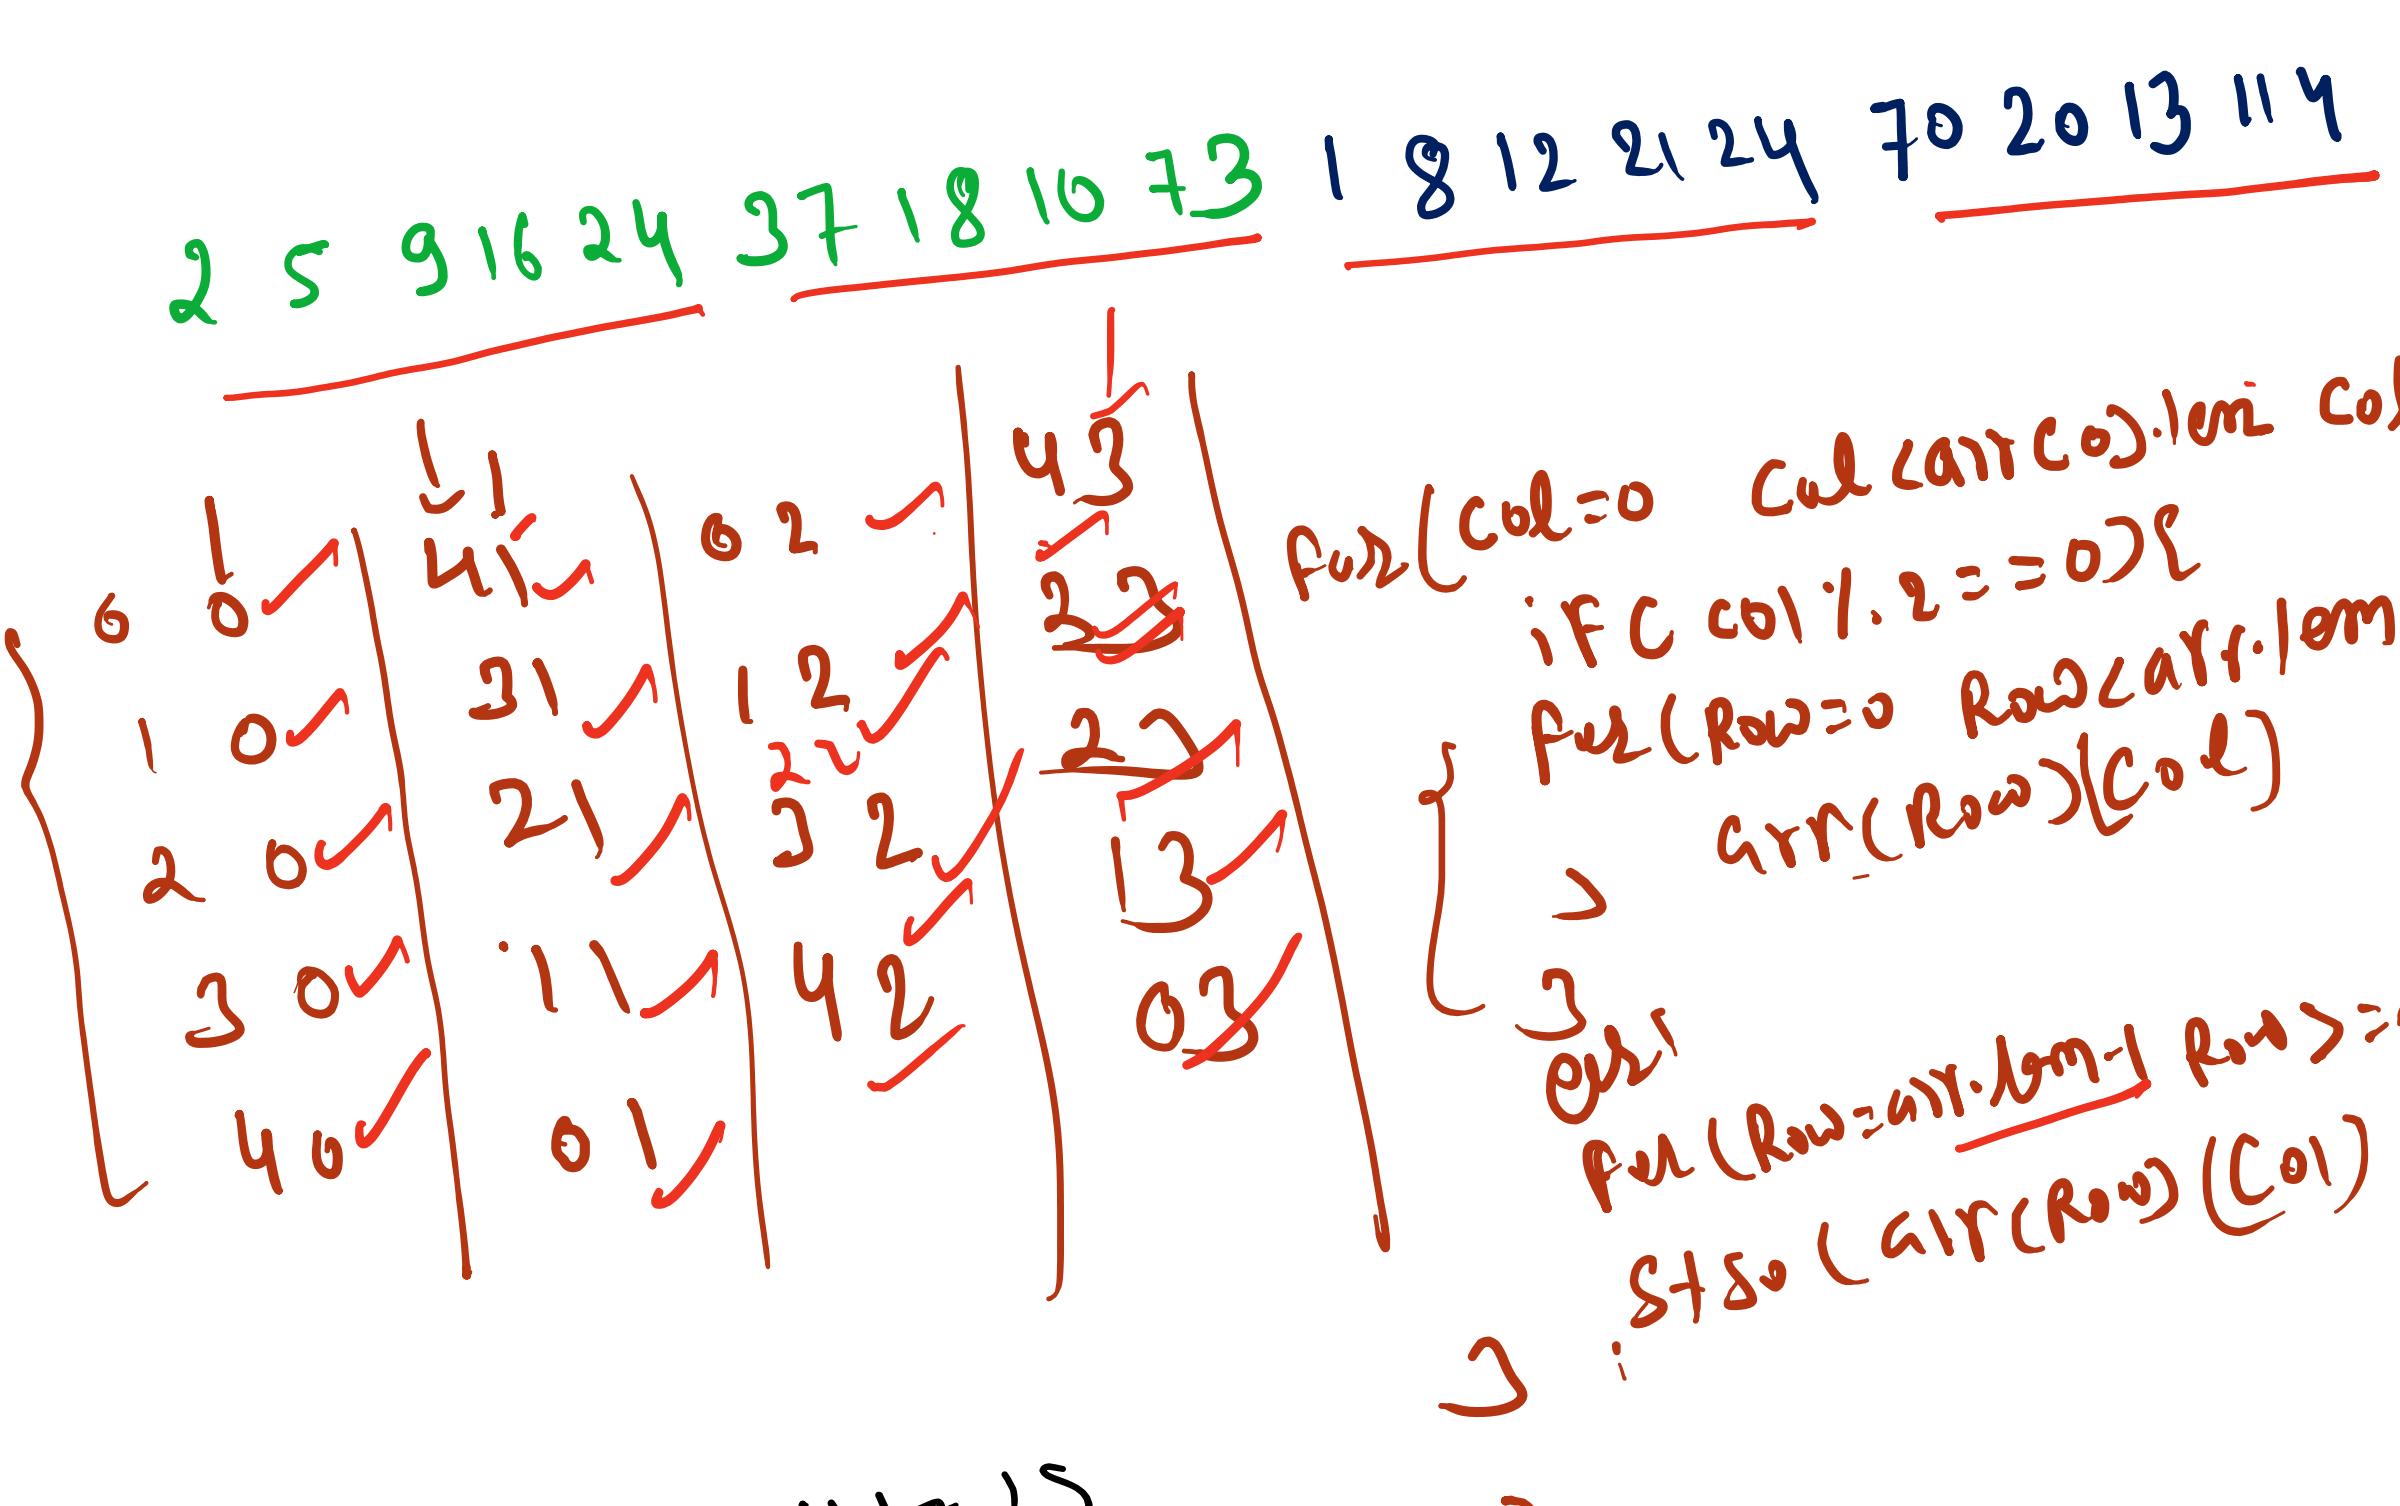 2 5 9 16 24 37 18 10 73 1 8 12 21 24 70 20 13 11 4
0 0 41 02 43
1 0 31 12 33
2 0 21 22 23
3 0 11 32 13
4 0 01 42 03
For (Col=0 Col<arr(0).len Col
if( Col % 2 ==0){
For (Row=0 Row<arr.len
arr(Row)(Col)
}
}
else
For (Row=arr.len-1 Row>=
Syso (arr(Row)(Col)
;
}